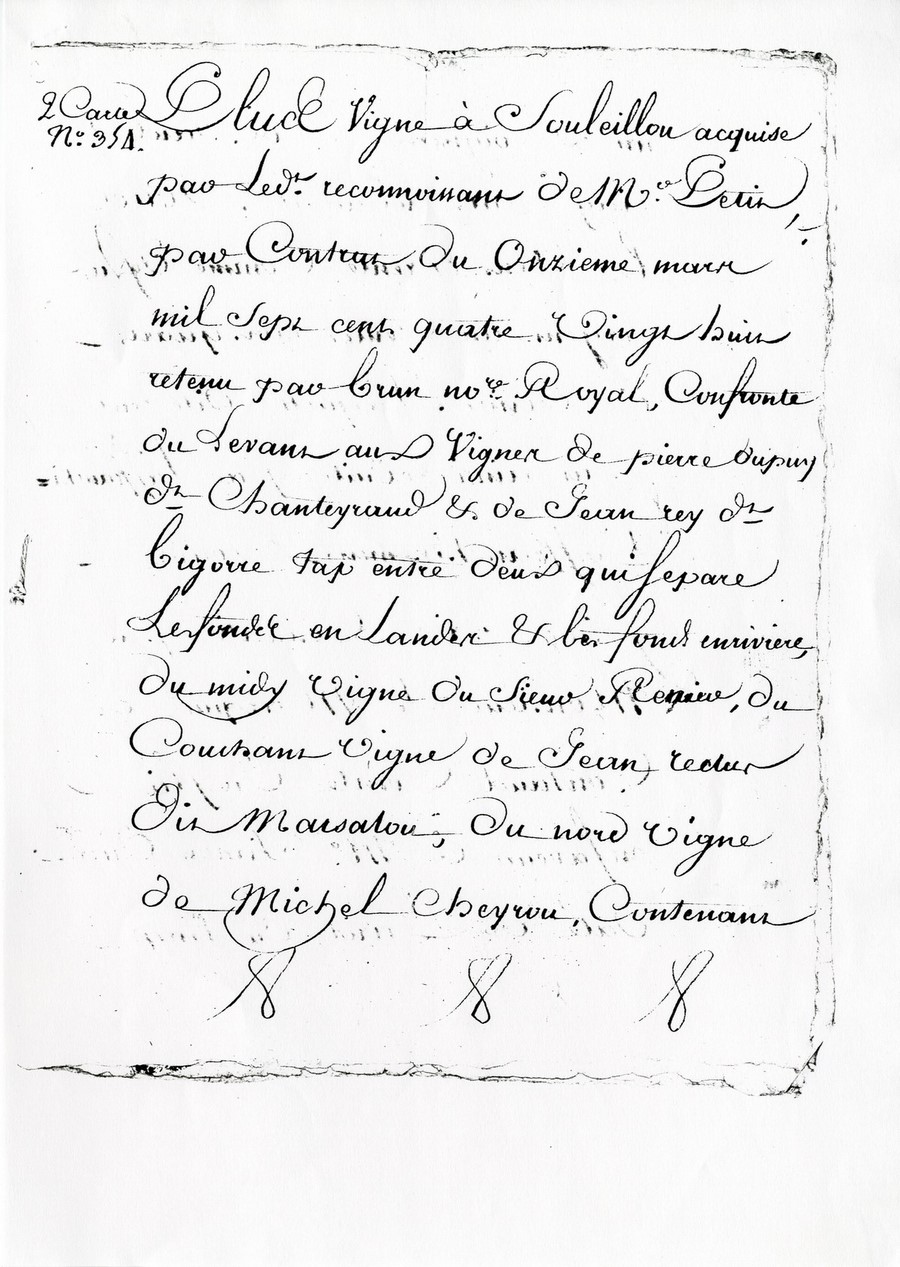 2 Carte
N.o 354.
Plus Vigne à Souleillou acquise
par Ledt. reconnoissant de Mr. Petit,
par Contrat du Onzieme mars
mil Sept cent quatre Vingt huit
retenu par brun nore. Royal, Confronte
du Levant aux Vignes de pierre dupuy
dt Chanteyraud & de Jean rey dt
bigorre tap entre deux qui Separe
Les fonds en Landes & les fonds en riviere,
du midy Vigne du Sieur Renier, du
Couchant Vigne de Jean reclus
Dit Marsalou, du nord Vigne
de Michel Cheyrou, Contenant